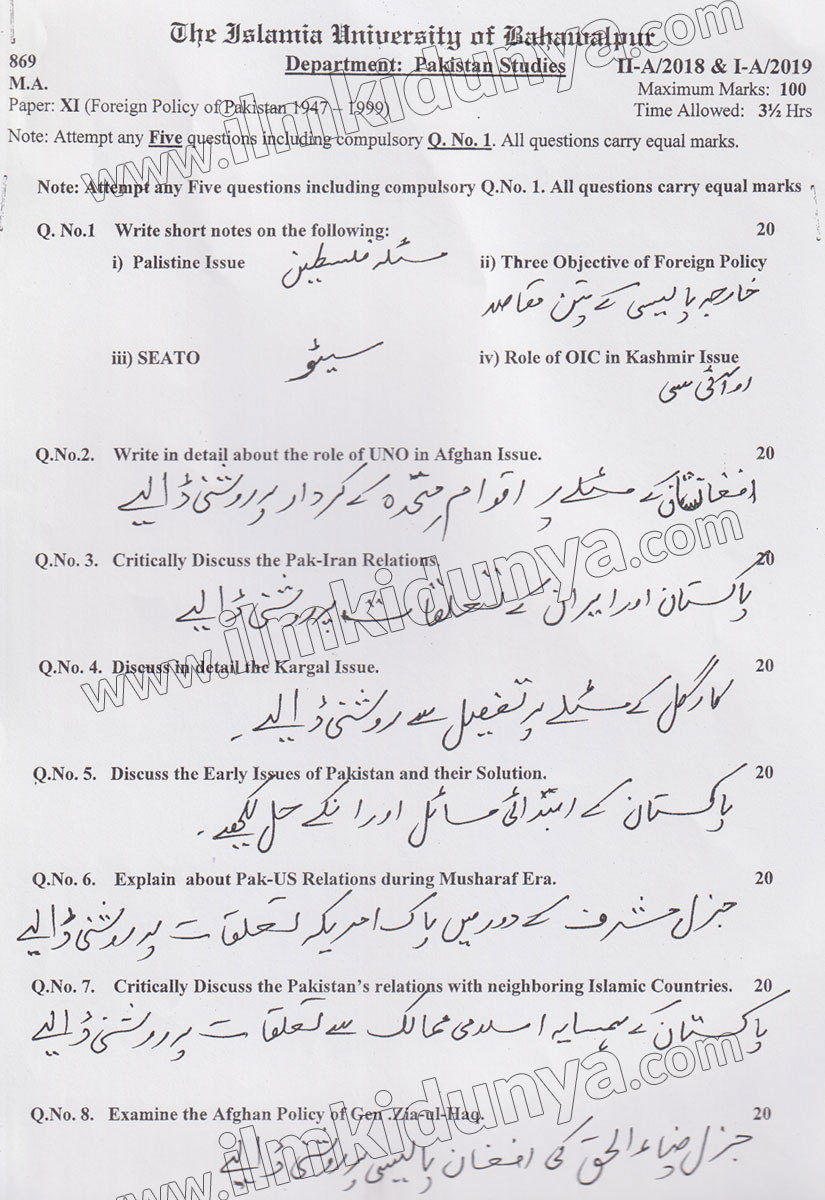 The Islamia University of Bahawalpur
869
Department: Pakistan Studies
II-A/2018 & I-A/2019
M.A.
Maximum Marks: 100
Paper: XI (Foreign Policy of Pakistan 1947 – 1999)
Time Allowed: 3½ Hrs
Note: Attempt any Five questions including compulsory Q. No. 1. All questions carry equal marks.
Note: Attempt any Five questions including compulsory Q.No. 1. All questions carry equal marks
Q. No.1 Write short notes on the following: 20
i) Palistine Issue مسئلہ فلسطین
ii) Three Objective of Foreign Policy
خارجہ پالیسی کے تین مقاصد
iii) SEATO سیٹو
iv) Role of OIC in Kashmir Issue
او آئی سی
Q.No.2. Write in detail about the role of UNO in Afghan Issue. 20
افغانستان کے مسئلے پر اقوام متحدہ کے کردار پر روشنی ڈالیے
Q.No. 3. Critically Discuss the Pak-Iran Relations. 20
پاکستان اور ایران کے تعلقات پر روشنی ڈالیے
Q.No. 4. Discuss in detail the Kargal Issue. 20
کارگل کے مسئلے پر تفصیل سے روشنی ڈالیے ۔
Q.No. 5. Discuss the Early Issues of Pakistan and their Solution. 20
پاکستان کے ابتدائی مسائل اور انکے حل لکھیے ۔
Q.No. 6. Explain about Pak-US Relations during Musharaf Era. 20
جنرل مشرف کے دور میں پاک امریکہ تعلقات پر روشنی ڈالیے
Q.No. 7. Critically Discuss the Pakistan's relations with neighboring Islamic Countries. 20
پاکستان کے ہمسایہ اسلامی ممالک سے تعلقات پر روشنی ڈالیے
Q.No. 8. Examine the Afghan Policy of Gen .Zia-ul-Haq. 20
جنرل ضیاء الحق کی افغان پالیسی پر روشنی ڈالیے
www.ilmkidunya.com
www.ilmkidunya.com
www.ilmkidunya.com